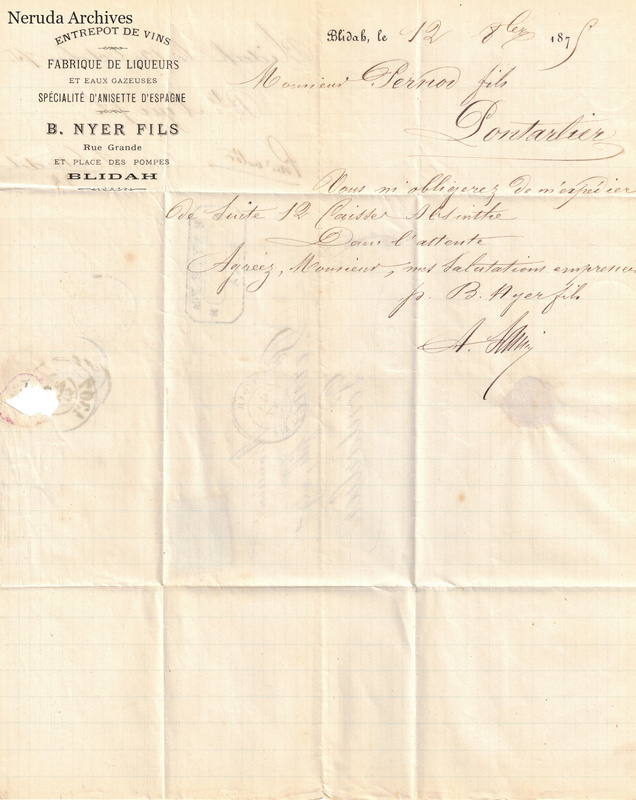 Neruda Archives
ENTREPOT DE VINS
FABRIQUE DE LIQUEURS
ET EAUX GAZEUSES
SPÉCIALITÉ D'ANISETTE D'ESPAGNE
B. NYER FILS
Rue Grande
ET PLACE DES POMPES
BLIDAH
Blidah, le 12 8bre 1875
Monsieur Pernod fils
Pontarlier
Vous m'obligerez de m'expédier
de suite 12 Caisses Absinthe
Dans l'attente
Agréez, Monsieur, mes salutations empressées
p. B. Nyer fils
A.